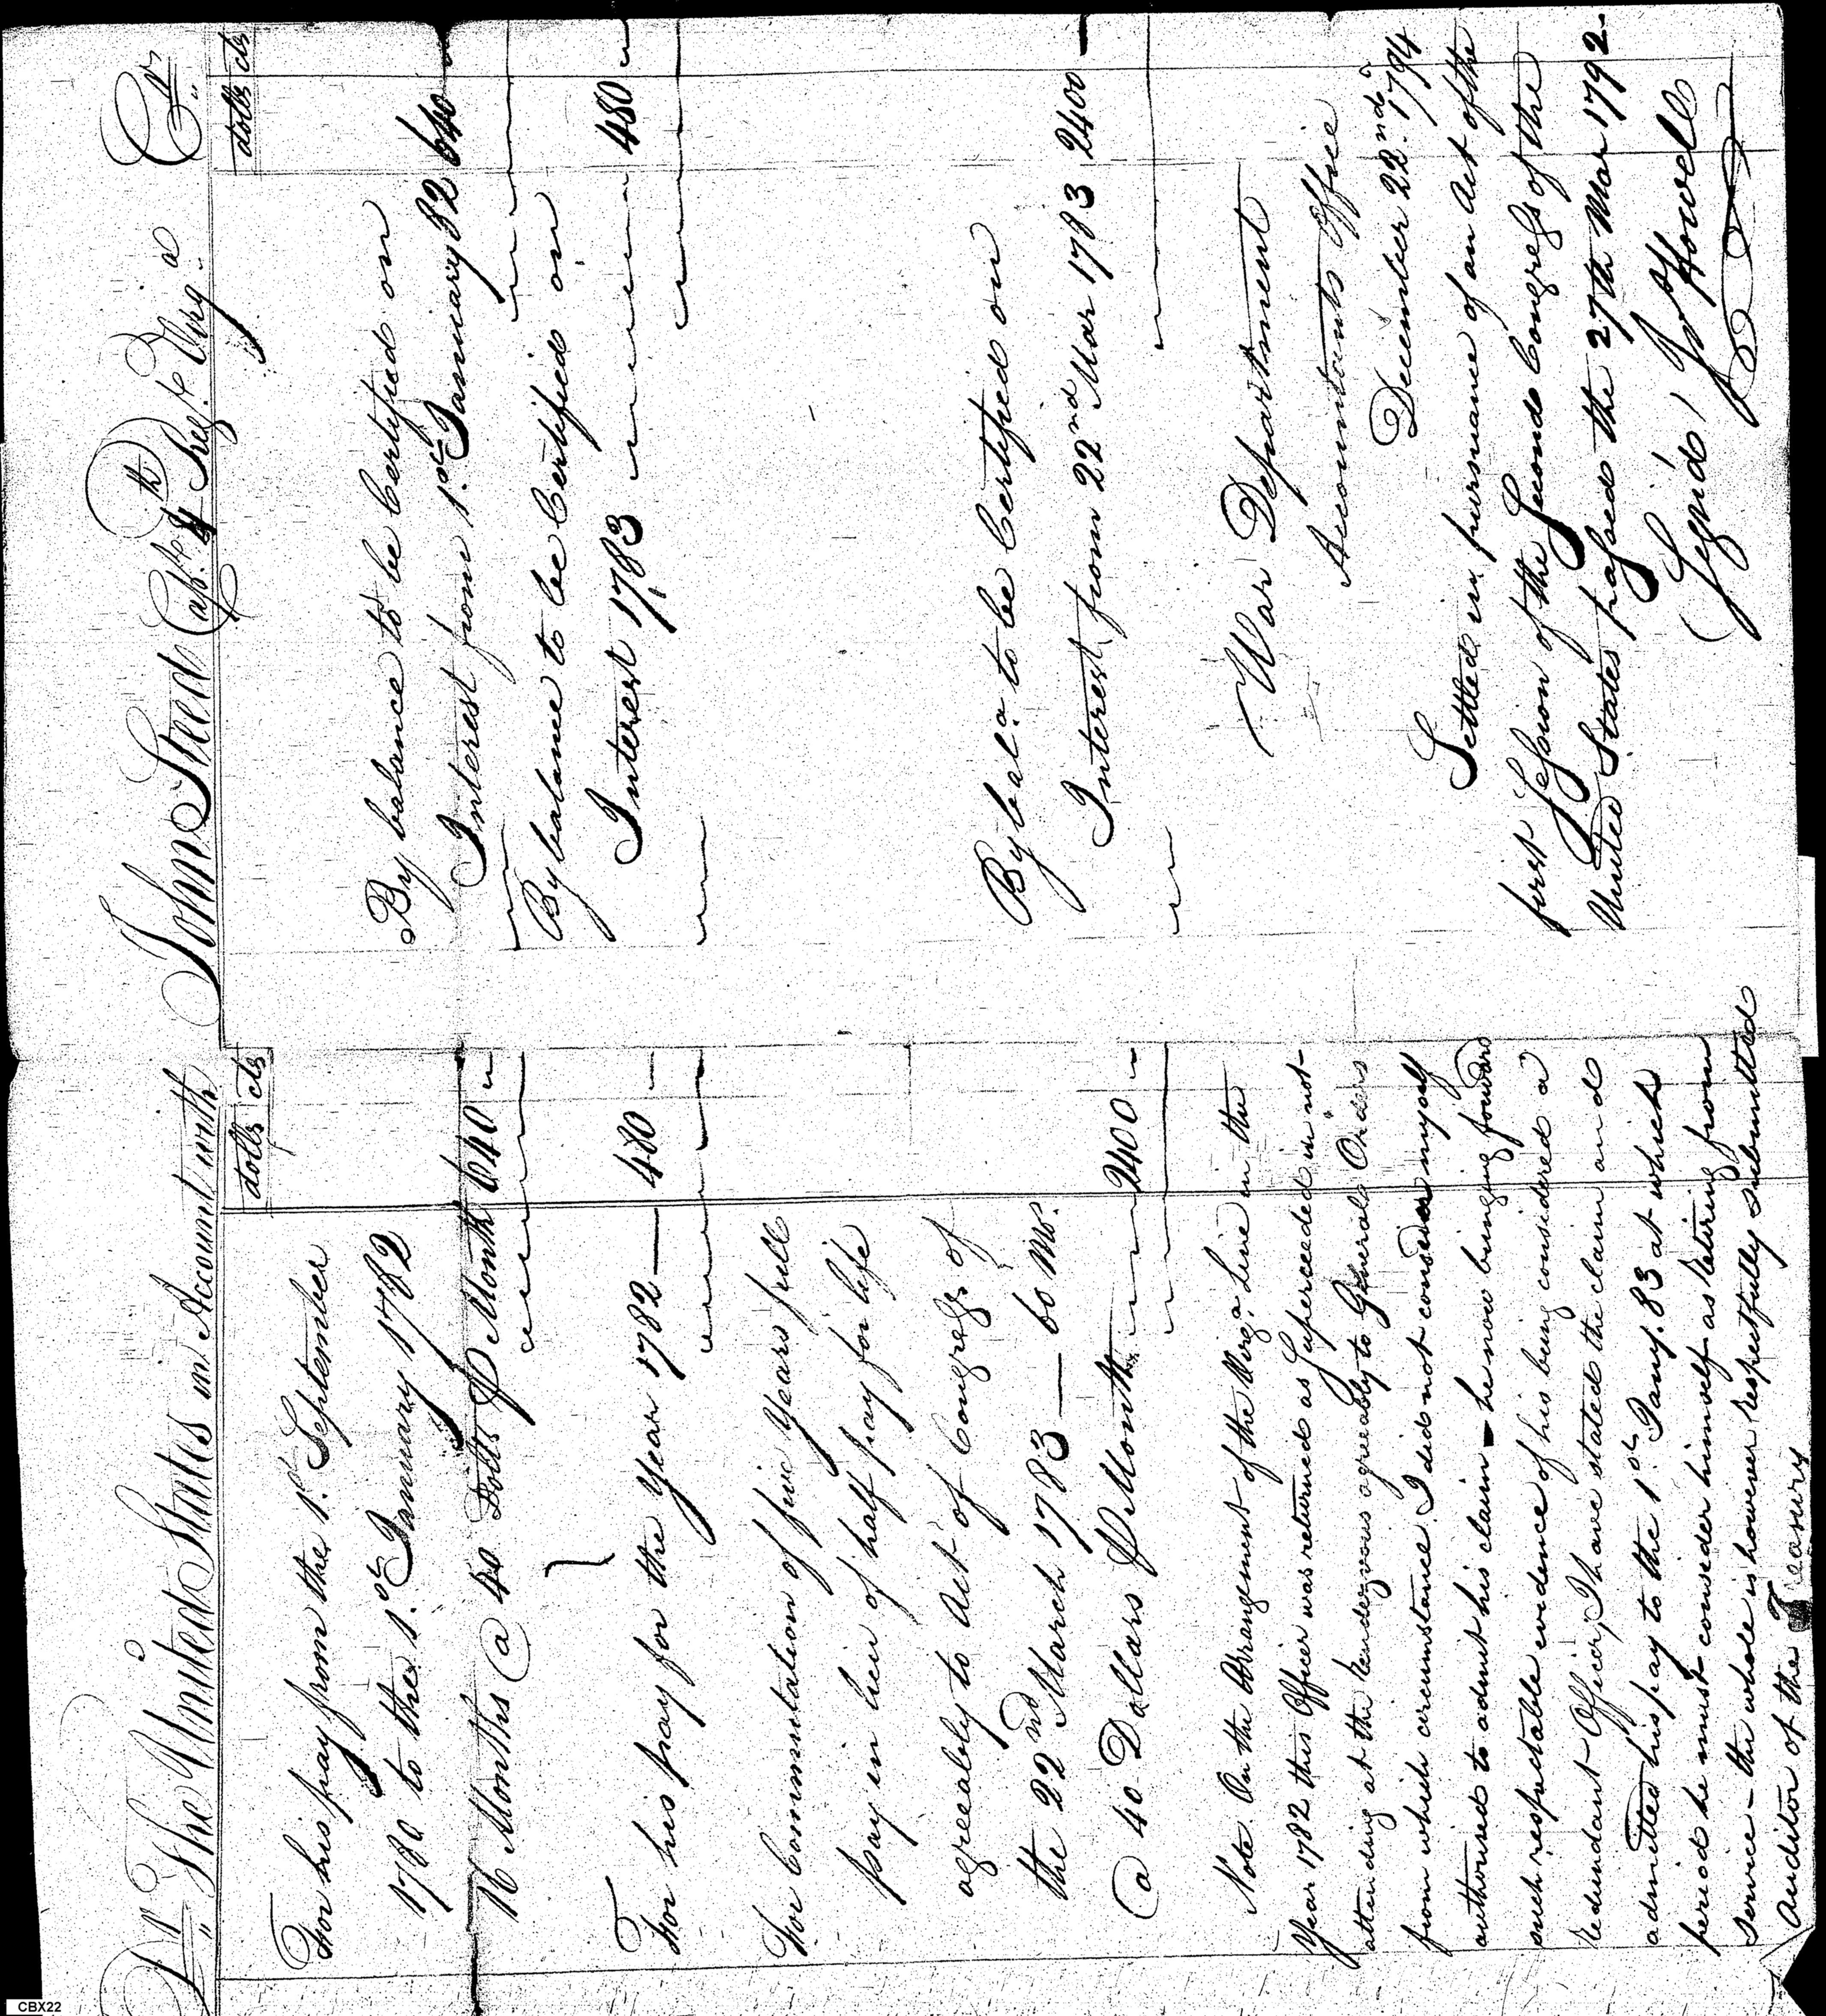 Dr. The United States in Account with John Steed Capt. 4th Regt. Virga. Cr.
dolls cts
For his pay from the 1st September
1780 to the 1st January 1782
16 Months @ 40 Dolls P Month 640
For his pay for the Year 1782 — 480
For Commutation of five Years full
pay in lieu of half pay for life
agreeably to Act of Congress of
the 22nd March 1783 — 60 Mos.
@ 40 Dollars P Month 2400
Note. On the Arrangement of the Virga. Line in the
Year 1782 this Officer was returned as Superceeded in not
attending at the Rendezvous agreeably to General Orders
from which circumstance I did not consider myself
authorised to admit his claim – he now bringing forward
such respectable evidence of his being considered a
redundant Officer, I have stated the claim and
admitted his pay to the 1st Jany. 83 at which
period he must consider himself as retiring from
service – the whole is however respectfully submitted
Auditor of the Treasury
dolls cts
By balance to be Certified on
Interest from 1st January 82 640
By balance to be Certified on
Interest 1783 480
By bala. to be Certified on
Interest from 22nd Mar 1783 2400 —
War Department
Accountants Office
December 22nd. 1794
Settled in pursuance of an Act of the
first Session of the Second Congress of the
United States passed the 27th Mar 1792.
(Signed) Jo Howell
CBX22